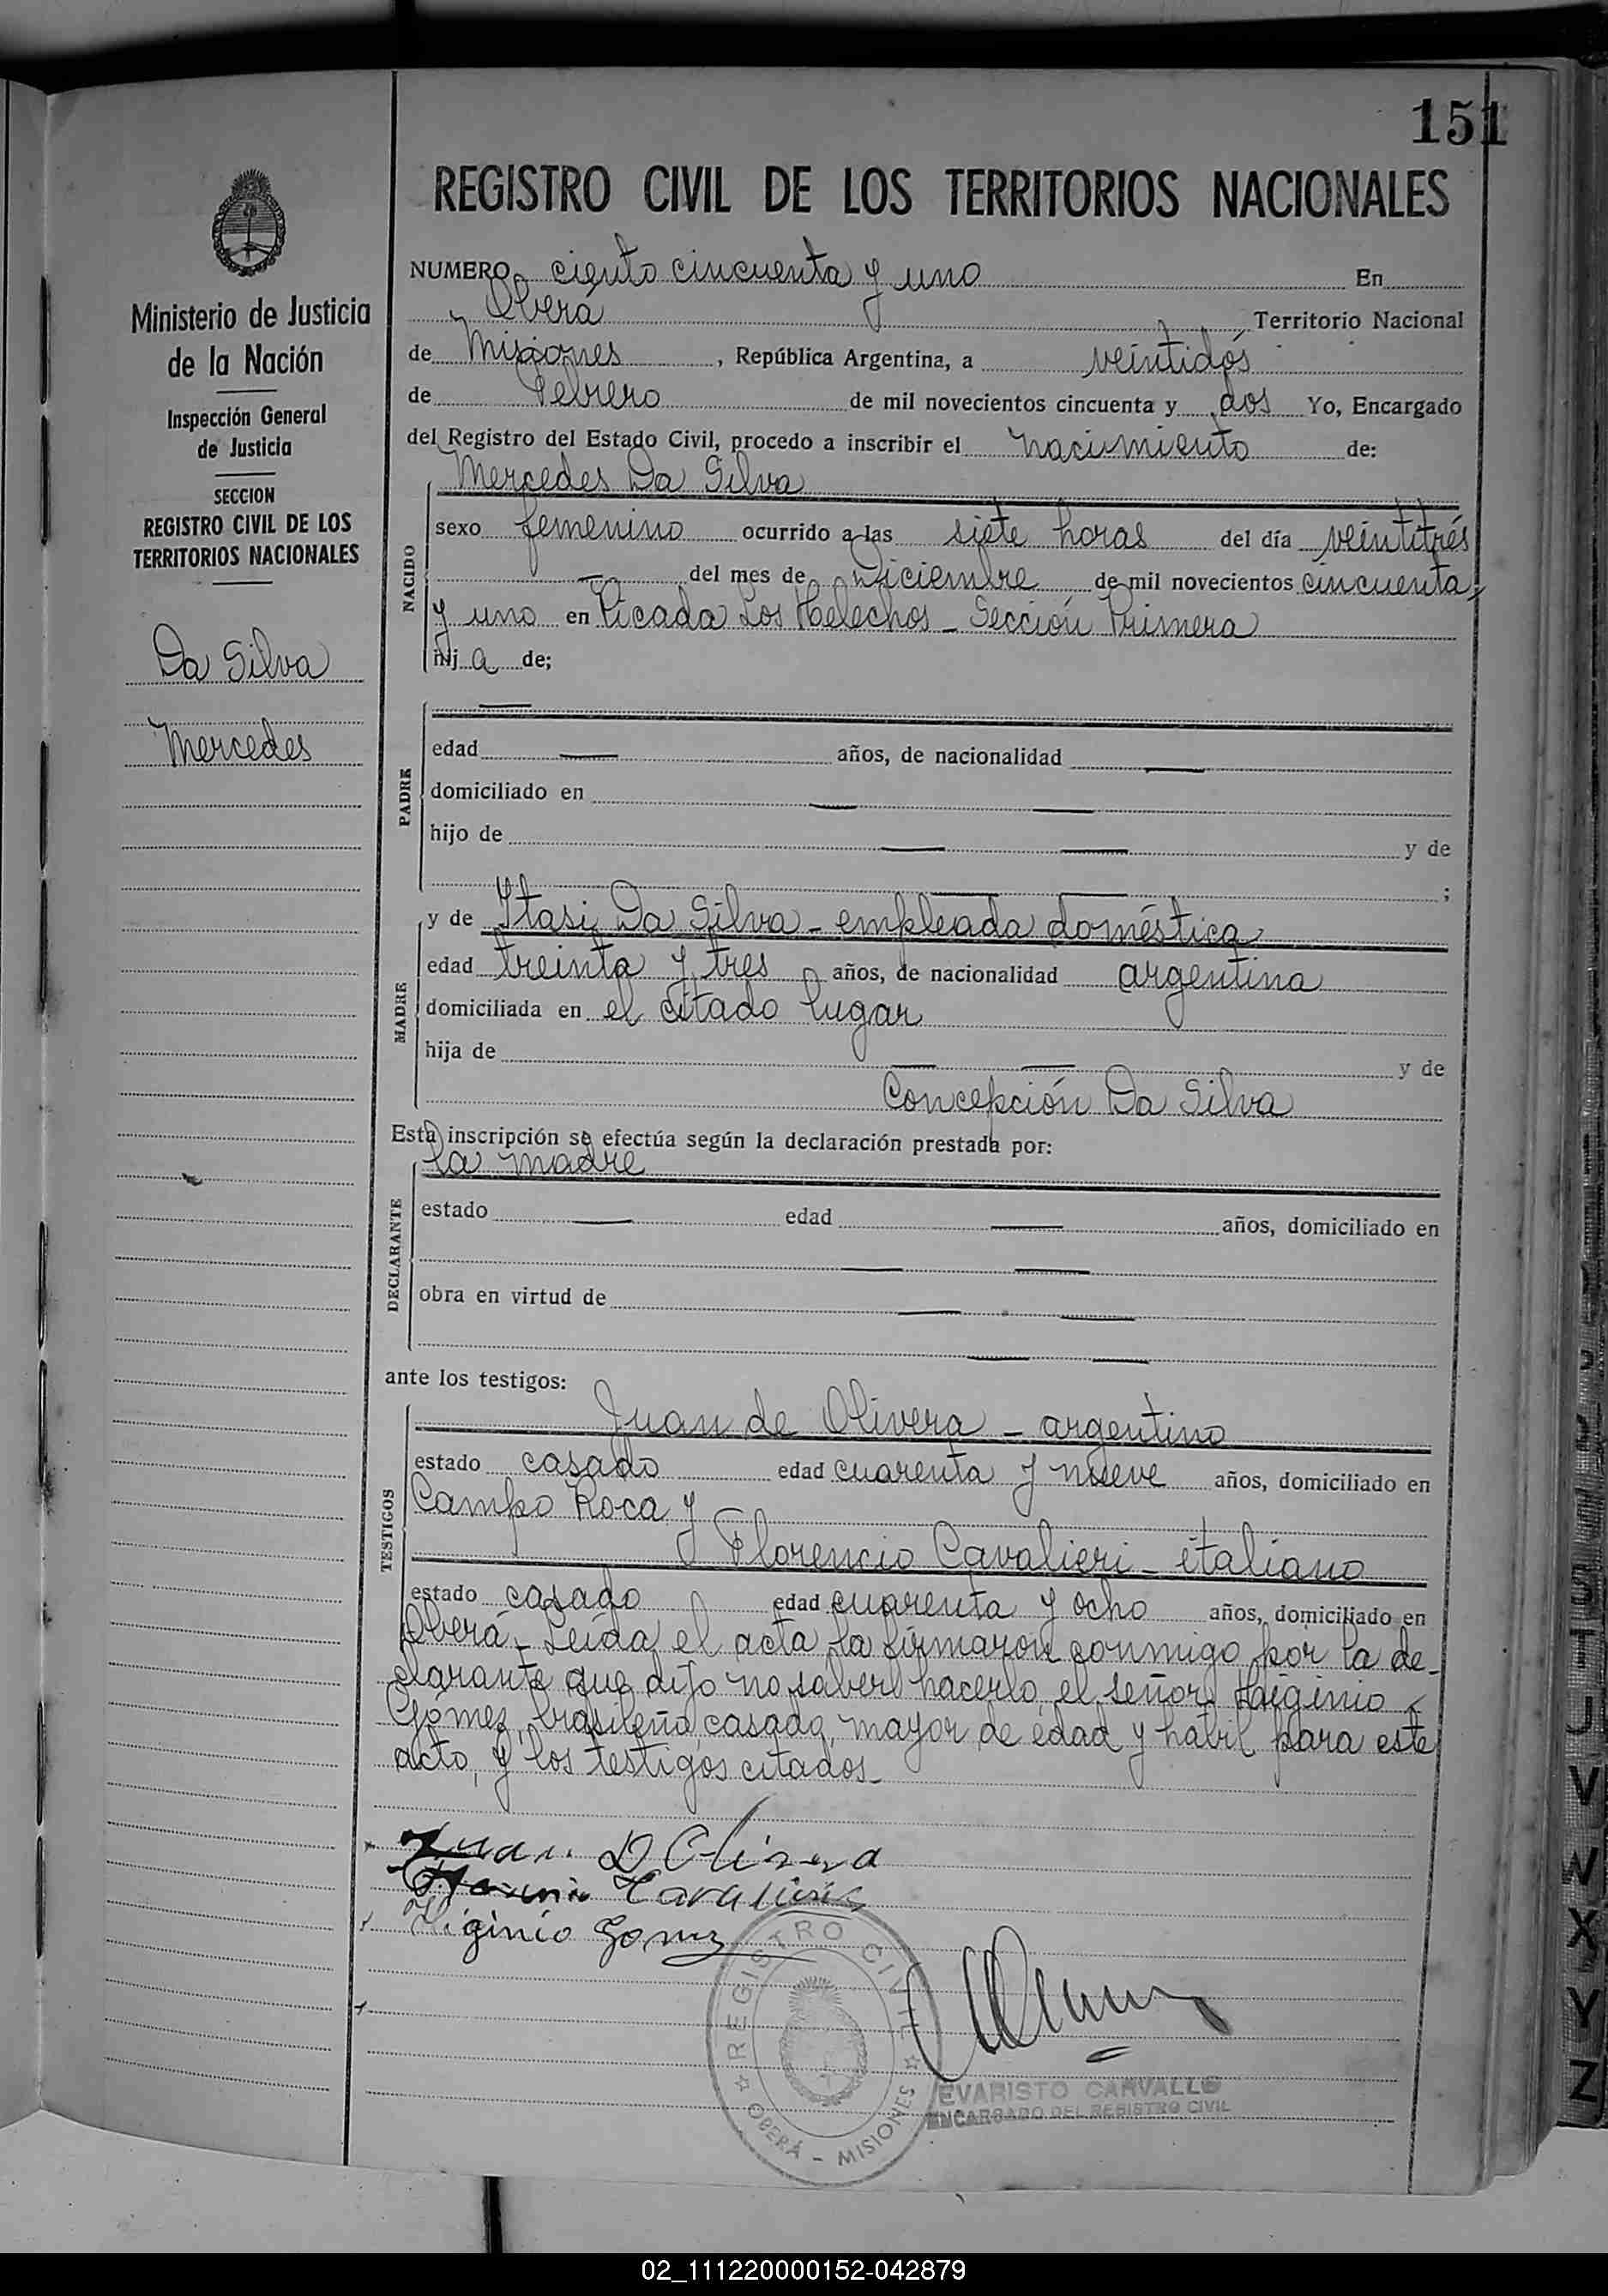 151
REGISTRO CIVIL DE LOS TERRITORIOS NACIONALES
Ministerio de Justicia
de la Nación
Inspección General
de Justicia
SECCION
REGISTRO CIVIL DE LOS
TERRITORIOS NACIONALES
Da Silva
Mercedes
NUMERO ciento cincuenta y uno En
Oberá Territorio Nacional
de Misiones, República Argentina, a veintidós
de Febrero de mil novecientos cincuenta y dos Yo, Encargado
del Registro del Estado Civil, procedo a inscribir el nacimiento de:
Mercedes Da Silva
NACIDO
sexo femenino ocurrido a las siete horas del día veintitrés
— del mes de Diciembre de mil novecientos cincuenta
y uno en Picada Los Helechos - Sección Primera
hij a de;
PADRE
—
edad — años, de nacionalidad —
domiciliado en — —
hijo de — — y de
— — ;
MADRE
y de Itasi Da Silva - empleada doméstica
edad treinta y tres años, de nacionalidad argentina
domiciliada en el citado lugar
hija de — — y de
Concepción Da Silva
Esta inscripción se efectúa según la declaración prestada por:
la madre
DECLARANTE
estado — edad — años, domiciliado en
— —
obra en virtud de — —
— —
ante los testigos:
TESTIGOS
Juan de Olivera - argentino
estado casado edad cuarenta y nueve años, domiciliado en
Campo Roca y
Florencio Cavalieri - italiano
estado casado edad cuarenta y ocho años, domiciliado en
Oberá - Leída el acta la firmaron conmigo por la de-
clarante que dijo no saber hacerlo el señor Higinio
Gómez, brasileño, casado, mayor de edad y hábil para este
acto, y los testigos citados -
Juan D Olivera
Cavalieri
Higinio Gomez
REGISTRO CIVIL
OBERÁ - MISIONES
EVARISTO CARVALLO
ENCARGADO DEL REGISTRO CIVIL
S
T
U
V
W
X
Y
Z
02_111220000152-042879